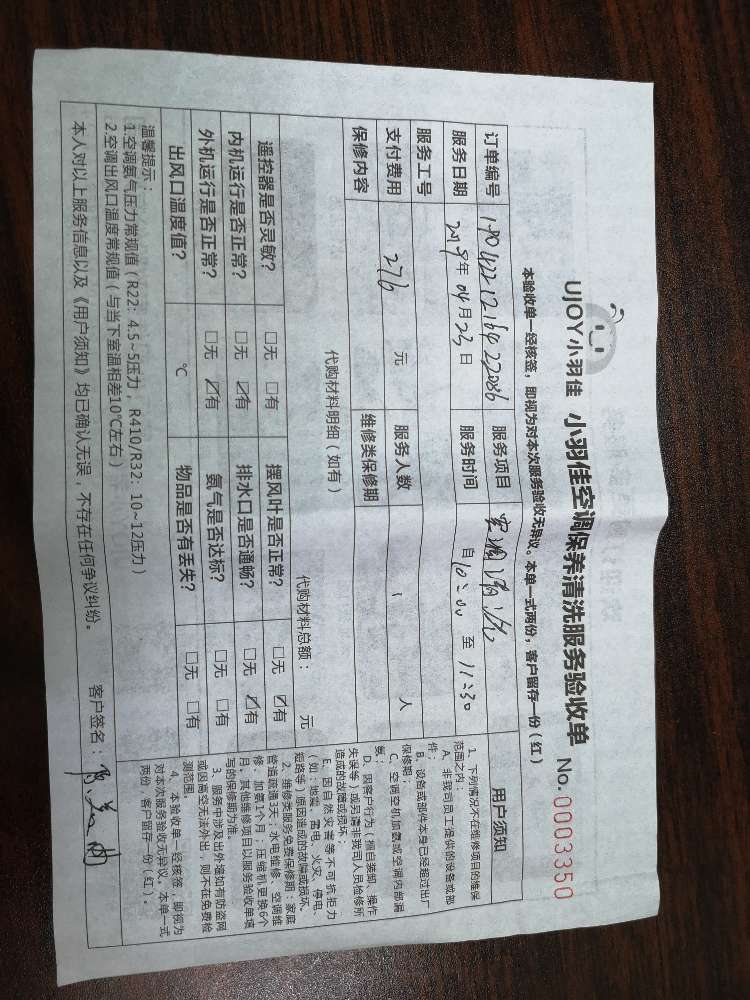 UJOY小羽佳 小羽佳空调保养清洗服务验收单 No.0003350
本验收单一经核签，即视为对本次服务验收无异议。本单一式两份，客户留存一份（红）
订单编号 服务项目 空调清洗
服务日期 2019年04月23日 服务时间 自10:00至11:30
服务工号
支付费用 276 元 服务人数 1 人
保修内容 维修类保修期
代购材料明细（如有） 代购材料总额： 元
遥控器是否灵敏？ □无 □有 摆风叶是否正常？ □无 ☑有
内机运行是否正常？ □无 ☑有 排水口是否通畅？ □无 ☑有
外机运行是否正常？ □无 ☑有 氨气是否达标？ □无 □有
出风口温度值？ ℃ 物品是否有丢失？ □无 □有
温馨提示：
1.空调氨气压力常规值（R22：4.5~5压力，R410/R32：10~12压力）
2.空调出风口温度常规值（与当下室温相差10℃左右）
本人对以上服务信息以及《用户须知》均已确认无误，不存在任何争议纠纷。 客户签名：
用户须知
1、下列情况不在维修项目的维保
范围之内：
A、非我司员工提供的设备或部
件；
B、设备或部件本身已经超过出厂
保修期；
C、空调空机加氨或空调内部漏
氨；
D、因客户行为（擅自装卸、操作
失误等）或另请非我司人员检修所
造成的故障或损坏；
E、因自然灾害等不可抗拒力
（如：地震、雷电、火灾、停电、
短路等）原因造成的故障或损坏。
2、维修类服务免费保修期：家庭
管道疏通3天；水电维修、空调维
修、加氨1个月；压缩机更换6个
月，其他维修项目以服务验收单填
写的保修期为准。
3、服务中涉及出外墙如有防盗网
或因高空无法外出，则不在免费检
测范围。
4、本验收单一经核签，即视为
对本次服务验收无异议。本单一式
两份，客户留存一份（红）。